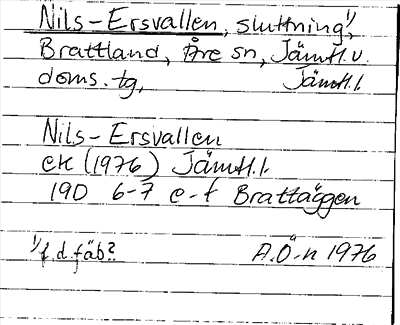 Nils-Ersvallen, sluttning¹⁾,
Brattland, Åre sn, Jämtl. v.
doms. tg, Jämtl. l.
Nils-Ersvallen
ek (1976) Jämtl. l.
19D 6-7 e-f Brattäggen
¹⁾f.d. fäb? A.Ö-n 1976